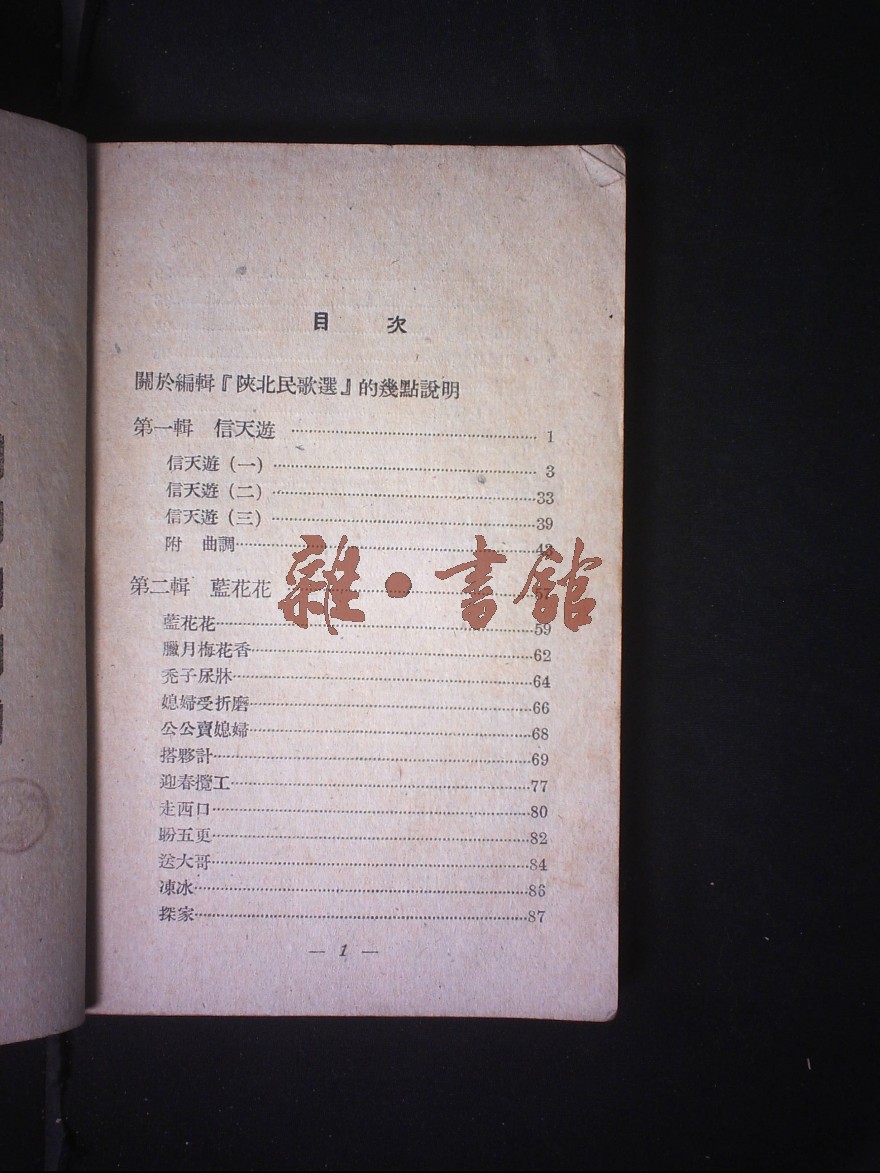 目 次
關於編輯『陝北民歌選』的幾點說明
第一輯 信天遊 ………………………………… 1
信天遊（一）………………………………… 3
信天遊（二）…………………………………33
信天遊（三）…………………………………39
附 曲調…………………………………43
第二輯 藍花花 …………………………………57
藍花花…………………………………59
臘月梅花香…………………………………62
禿子尿牀…………………………………64
媳婦受折磨…………………………………66
公公賣媳婦…………………………………68
搭夥計…………………………………69
迎春攬工…………………………………77
走西口…………………………………80
盼五更…………………………………82
送大哥…………………………………84
凍冰…………………………………86
探家…………………………………87
— 1 —
雜·書館